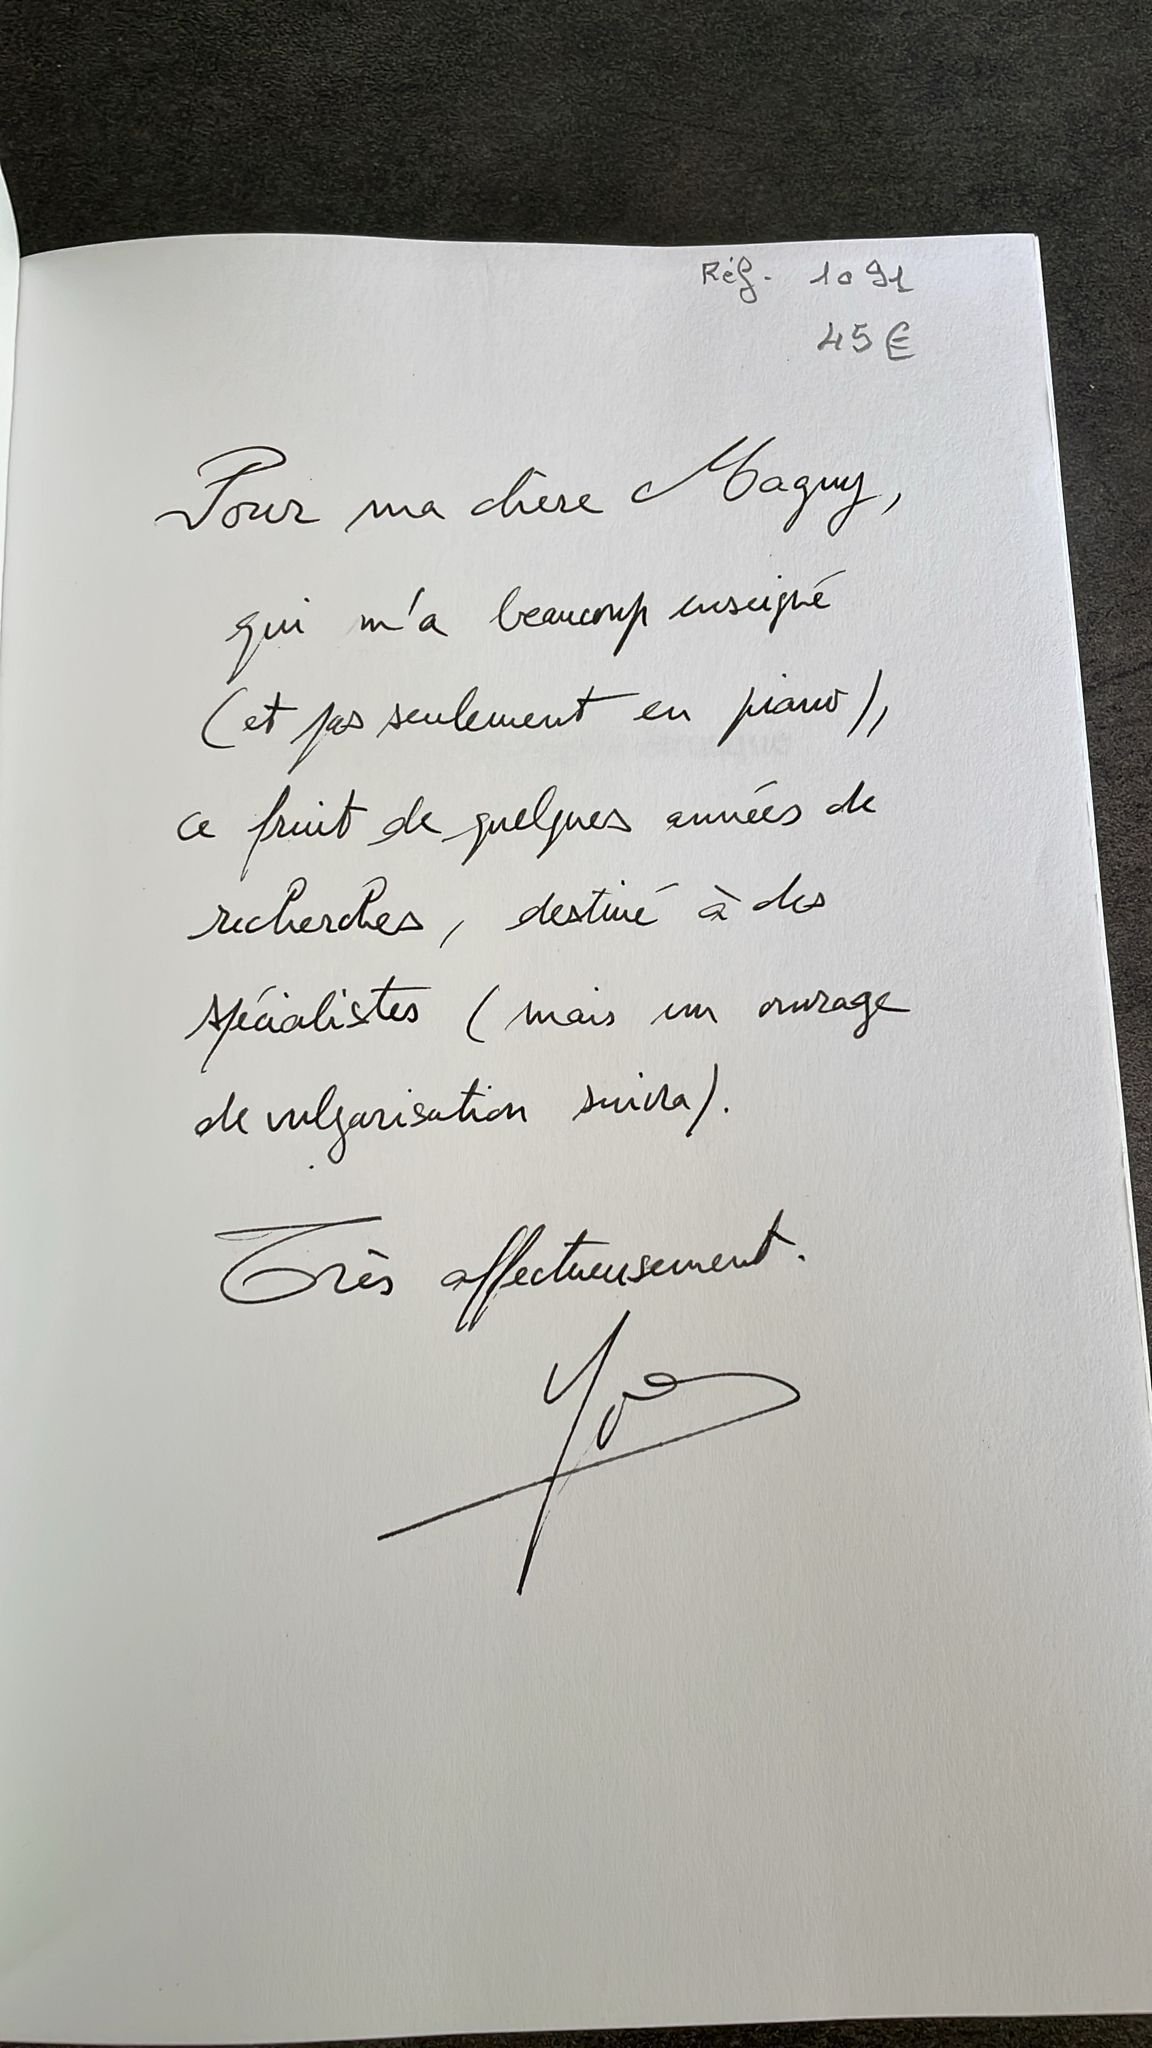 Réf. 1091
45€
Pour ma chère Maguy,
qui m'a beaucoup enseigné
(et pas seulement en piano),
ce fruit de quelques années de
recherches, destiné à des
spécialistes (mais un ouvrage
de vulgarisation suivra).
Très affectueusement.
Yves